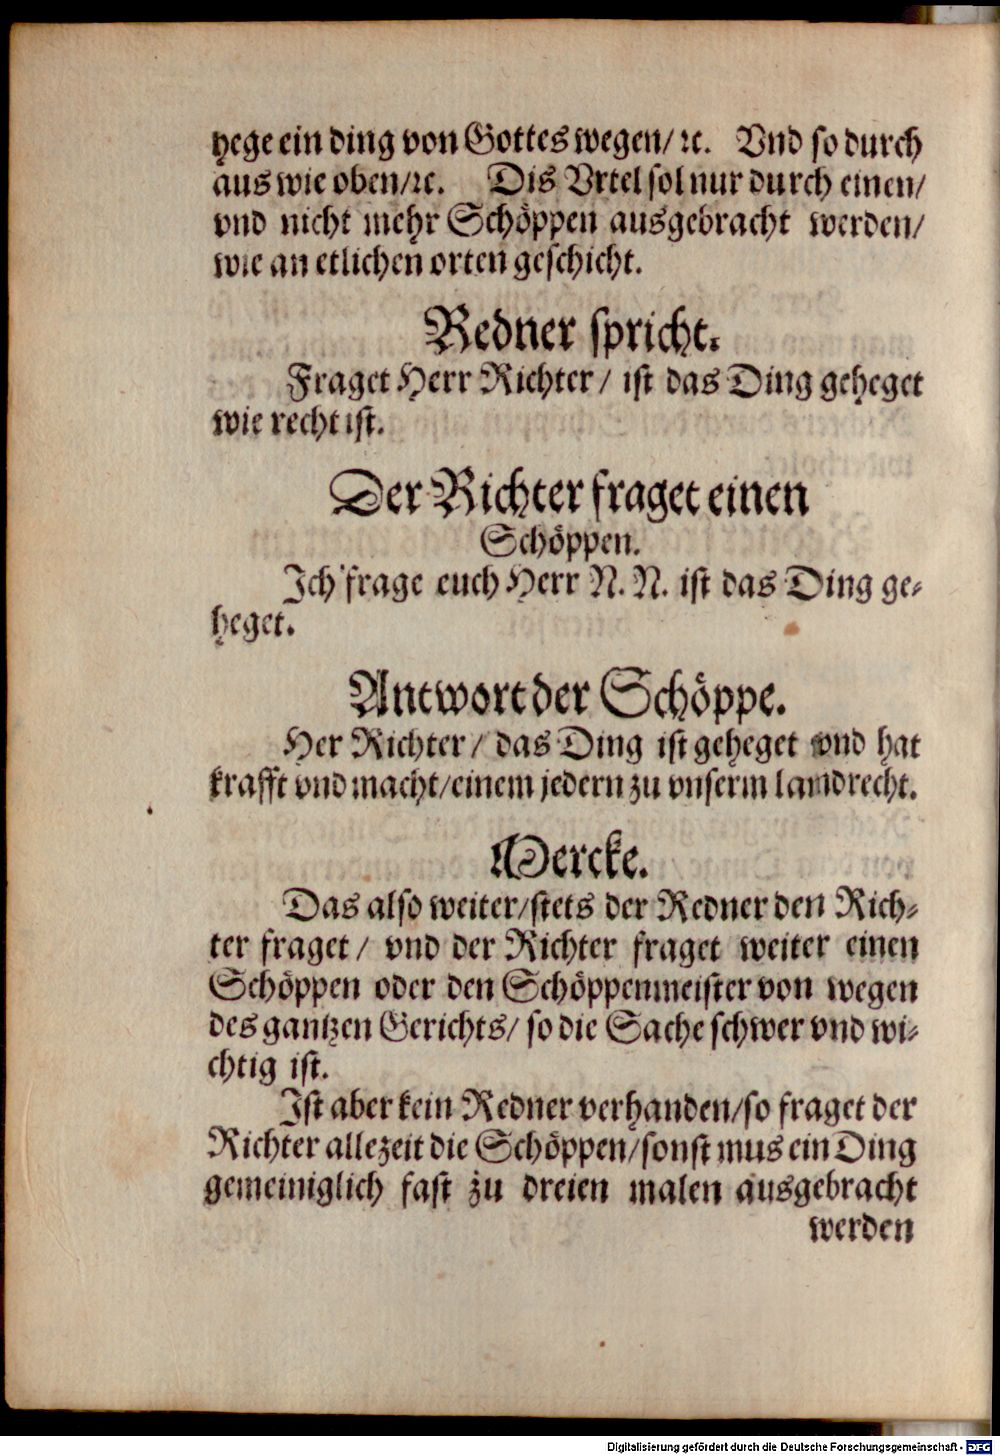 hege ein ding von Gottes wegen/ ꝛc. Vnd so durch
aus wie oben/ꝛc. Dis Vrtel sol nur durch einen/
vnd nicht mehr Schöppen ausgebracht werden/
wie an etlichen orten geschicht.
Redner spricht.
Fraget Herr Richter/ ist das Ding geheget
wie recht ist.
Der Richter fraget einen
Schöppen.
Ich frage euch Herr N. N. ist das Ding ge-
heget.
Antwort der Schöppe.
Her Richter/ das Ding ist geheget vnd hat
krafft vnd macht/einem jedern zu vnserm landrecht.
Mercke.
Das also weiter/stets der Redner den Rich-
ter fraget/ vnd der Richter fraget weiter einen
Schöppen oder den Schöppenmeister von wegen
des gantzen Gerichts/ so die Sache schwer vnd wi-
chtig ist.
Ist aber kein Redner verhanden/so fraget der
Richter allezeit die Schöppen/sonst mus ein Ding
gemeiniglich fast zu dreien malen ausgebracht
werden
Digitalisierung gefördert durch die Deutsche Forschungsgemeinschaft - DFG